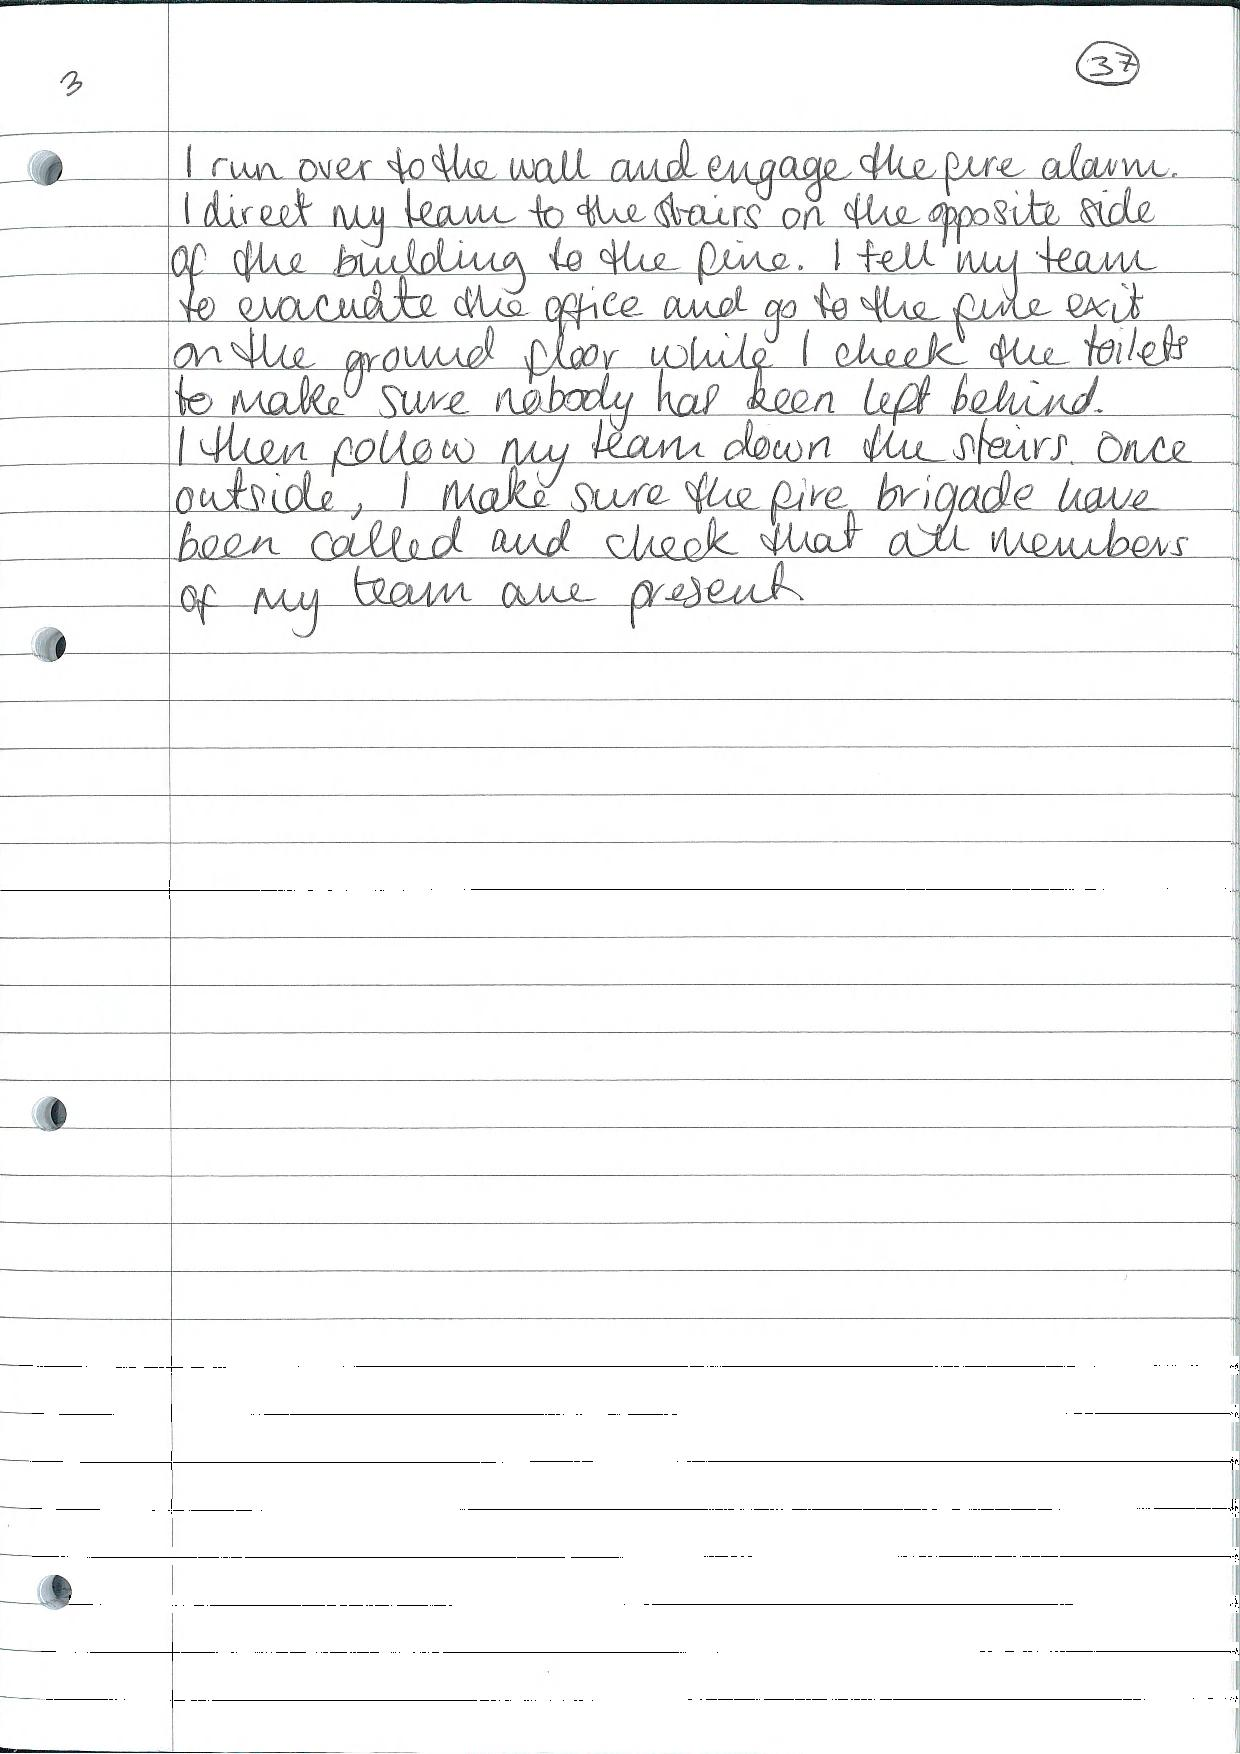 3
37
I run over to the wall and engage the fire alarm.
I direct my team to the stairs on the opposite side
of the building to the fire. I tell my team
to evacuate the office and go to the fire exit
on the ground floor while I check the toilets
to make sure nobody has been left behind.
I then follow my team down the stairs. Once
outside, I make sure the fire brigade have
been called and check that all members
of my team are present.